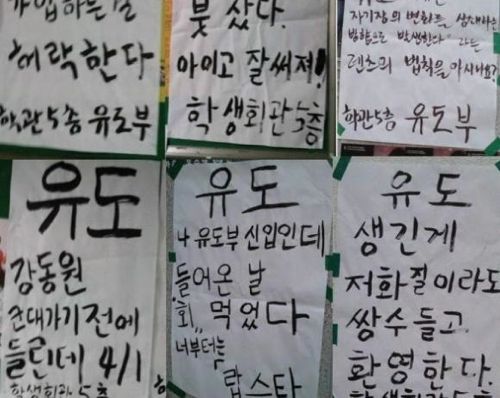 가입하는걸
허락한다
학관5층 유도부
붓 샀다.
아이고 잘써져!
학생회관5층
자기장의 변화를 상쇄하는
방향으로 발생한다" 라는
렌츠의 법칙을 아시나요?
학관5층 유도부
유도
강동원
군대가기전에
들린데 4/1
학생회관5층
유도
나 유도부 신입인데
들어온 날
회,, 먹었다
너부터는
랍스타
유도
생긴게
저화질이라도
쌍수들고
환영한다.
학생회관5층